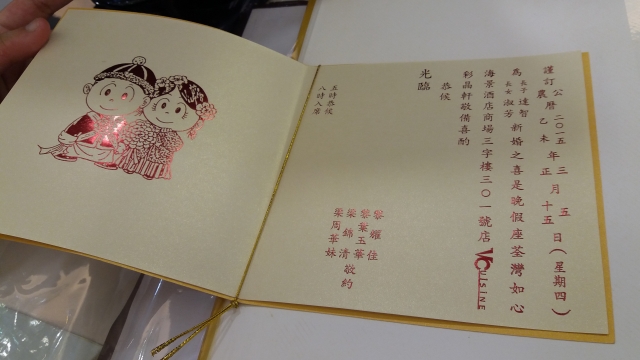 謹訂 公曆二〇一五年三月五日(星期四)
農曆乙未年正月十五日
為 長子達智 長女淑芳 新婚之喜是晚假座荃灣如心
海景酒店商場三字樓三〇一號店 VCUISINE
彩晶軒敬備喜酌
恭候
光臨
黎耀佳
黎葉玉華
梁錦清
梁周華妹
敬約
五時恭候
八時入席